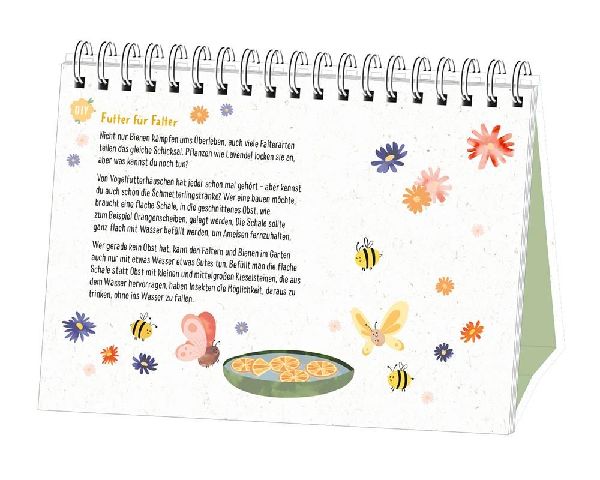 DIY
Futter für Falter
Nicht nur Bienen kämpfen ums Überleben, auch viele Falterarten
teilen das gleiche Schicksal. Pflanzen wie Lavendel locken sie an,
aber was kennst du noch tun?
Von Vogelfutterhäuschen hat jeder schon mal gehört – aber kennst
du auch schon die Schmetterlingstränke? Wer eine bauen möchte,
braucht eine flache Schale, in die geschnittenes Obst, wie
zum Beispiel Orangenscheiben, gelegt werden. Die Schale sollte
ganz flach mit Wasser befüllt werden, um Ameisen fernzuhalten.
Wer gerade kein Obst hat, kann den Faltern und Bienen im Garten
auch nur mit etwas Wasser etwas Gutes tun. Befüllt man die flache
Schale statt Obst mit kleinen und mittelgroßen Kieselsteinen, die aus
dem Wasser hervorragen, haben Insekten die Möglichkeit, daraus zu
trinken, ohne ins Wasser zu fallen.